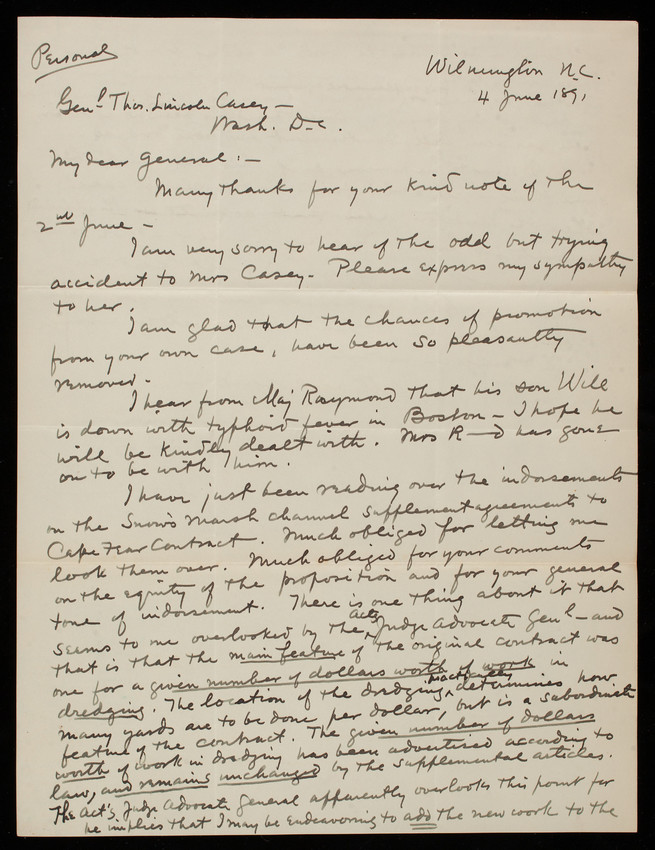 Personal
Wilmington N.C.
4 June 1891
Genl Thos. Lincoln Casey —
Wash. D.C.
My dear General : —
Many thanks for your kind note of the
2nd June —
I am very sorry to hear of the odd but trying
accident to Mrs Casey - Please express my sympathy
to her.
I am glad that the chances of promotion
from your own case, have been so pleasantly
removed.
I hear from Maj Raymond that his son Will
is down with typhoid fever in Boston — I hope he
will be kindly dealt with. Mrs R—d has gone
on to be with him.
I have just been reading over the indorsements
on the Snow's Marsh channel supplement agreements to
Cape Fear Contract. Much obliged for letting me
look them over. Much obliged for your comments
on the equity of the proposition and for your general
tone of indorsement. There is one thing about it that
seems to me overlooked by the Actg Judge Advocate Genl — and
that is that the main feature of the original contract was
one for a given number of dollars worth of work in
dredging. The location of the dredging practically determines how
many yards are to be done per dollar, but is a subordinate
feature of the contract. The given number of dollars
worth of work in dredging has been advertised according to
law, and remains unchanged by the supplemental articles.
The Act'g Judge Advocate General apparently overlooks this point for
he implies that I may be endeavoring to add the new work to the